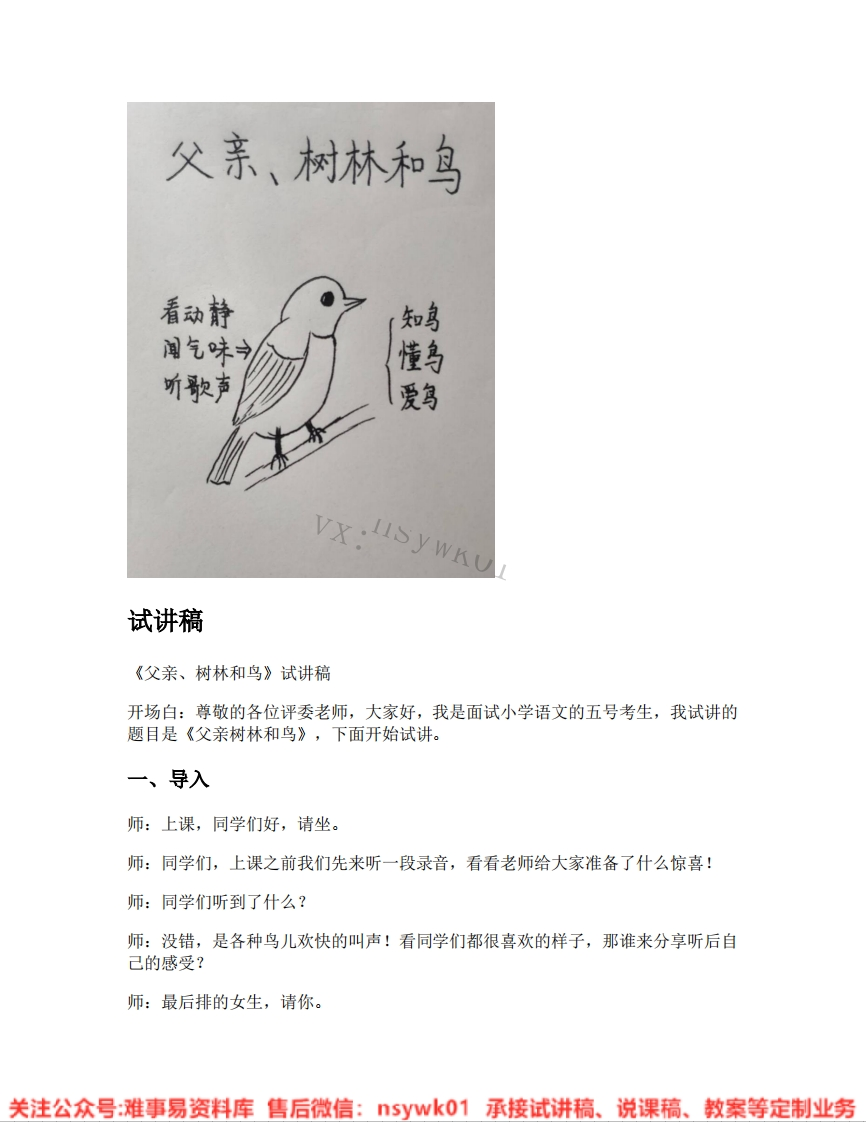 父亲、树林和鸟
看动静
闻气味⇒
听歌声
知鸟
懂鸟
爱鸟
VX:nsywk01
试讲稿
《父亲、树林和鸟》试讲稿
开场白：尊敬的各位评委老师，大家好，我是面试小学语文的五号考生，我试讲的
题目是《父亲树林和鸟》，下面开始试讲。
一、导入
师：上课，同学们好，请坐。
师：同学们，上课之前我们先来听一段录音，看看老师给大家准备了什么惊喜！
师：同学们听到了什么？
师：没错，是各种鸟儿欢快的叫声！看同学们都很喜欢的样子，那谁来分享听后自
己的感受？
师：最后排的女生，请你。
关注公众号:难事易资料库 售后微信：nsywk01 承接试讲稿、说课稿、教案等定制业务